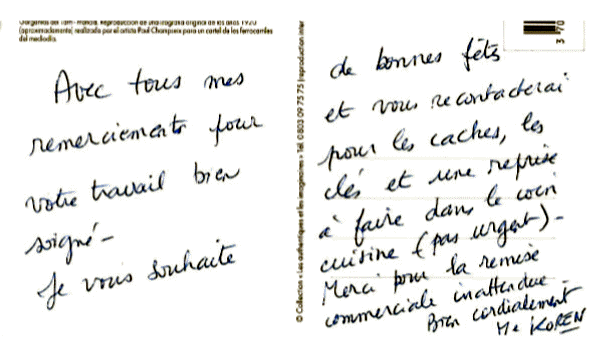 Gorgandes del Tarn - Francia. Reproducción de una litografía original de los años 1920
(aproximadamente) realizada por el artista Paul Champseix para un cartel de los ferrocarriles
del mediodía.
Avec tous mes
remerciements pour
votre travail bien
soigné -
Je vous souhaite
© Collection • Les authentiques et les imaginaires • Tél. 0 803 09 75 75 | reproduction inter
3 70
de bonnes fêts
et vous recontacterai
pour les caches, les
clés et une reprise
à faire dans le coin
cuisine (pas urgent) -
Merci pour la remise
commerciale inattendue -
Bien cordialement
Me KOREN